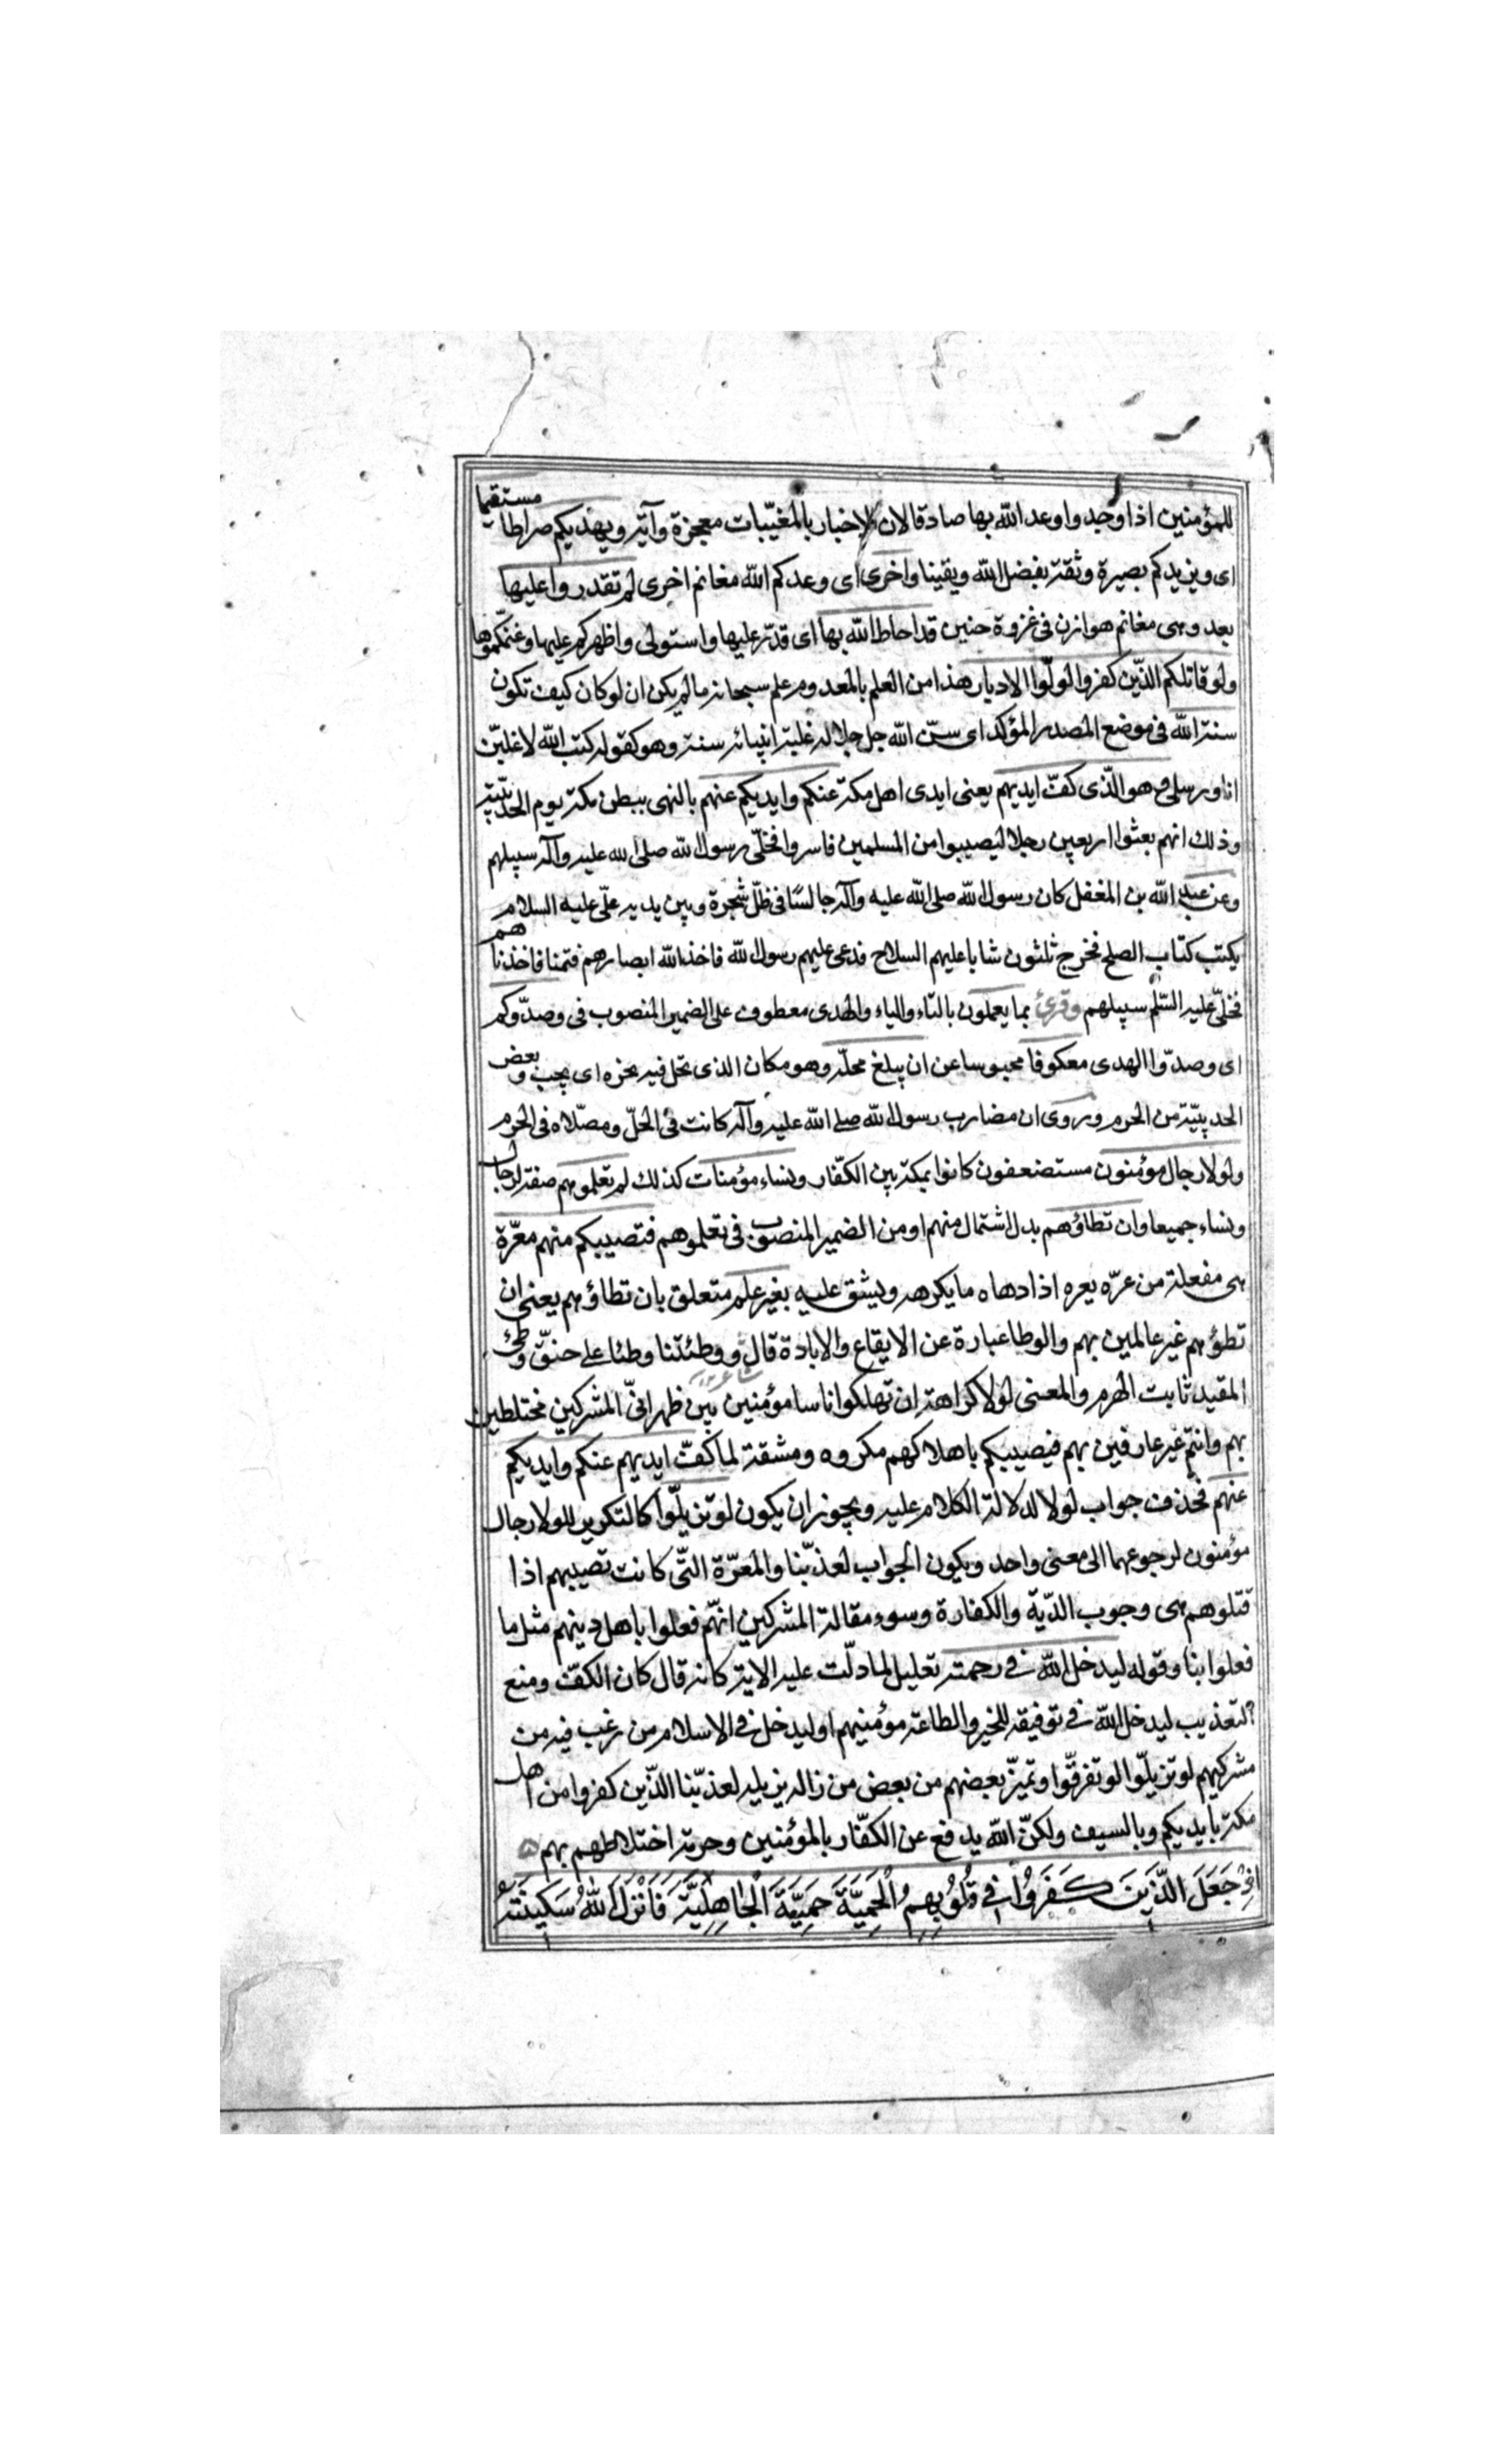 للمؤمنين اذا وجدوا وعد الله بها صادقا لان الاخبار بالمغيّبات معجزة وآية ويهديكم صراطا مستقيما
اى ويزيدكم بصيرة وثقة بفضل الله ويقينا واخرى اى وعدكم الله مغانم اخرى لم تقدروا عليها
بعد وهى مغانم هوازن فى غزوة حنين قد احاط الله بها اى قدّر عليها واستولى واظهركم عليها وغنمكموها
ولو قاتلكم الذّين كفروا لولّوا الادبار هذا من العلم بالمعدوم علم سبحانه ما لم يكن ان لو كان كيف تكون
سنة الله فى موضع المصدر المؤكد اى سنّ الله جل جلاله غلبة انبيائه سنة وهو كقوله كتب الله لاغلبنّ
انا ورسلى وهو الذّى كفّ ايديهم يعنى ايدى اهل مكة عنكم وايديكم عنهم بالنهى ببطن مكة يوم الحديبيّة
وذلك انهم بعثوا اربعين رجلا ليصيبوا من المسلمين فاسروا فخلّى رسول الله صلى الله عليه وآله سبيلهم
وعن عبد الله بن المغفل كان رسول الله صلى الله عليه وآله جالسًا فى ظلّ شجرة وبين يديه علّى عليه السلام
يكتب كتاب الصلح فخرج ثلثون شابا عليهم السلاح فدعى عليهم رسول الله فاخذ الله ابصارهم فقمنا فاخذناهم
فخلّى عليه السّلم سبيلهم وقرئ بما يعملون بالتاء والياء والهدى معطوف على الضمير المنصوب فى وصدّوكم
اى وصدّوا الهدى معكوفا محبوسا عن ان يبلغ محلّه وهو مكان الذى تحل فيه نحره اى يجب وبعض
الحديبيّة من الحرم وروى ان مضارب رسول الله صلى الله عليه وآله كانت فى الحلّ ومصّلاه فى الحرم
ولولا رجال مؤمنون مستضعفون كانوا بمكة بين الكفّار ونساء مؤمنات كذلك لم تعلموهم صفة لرجال
ونساء جميعا وان تطاؤهم بدل اشتمال منهم او من الضمير المنصوب فى تعلموهم فتصيبكم منهم معرّة
هى مفعلة من عرّه يعره اذا دهاه ما يكرهه ويشق عليه بغير علم متعلق بان تطاؤهم يعنى ان
تطؤهم غير عالمين بهم والوطا عبارة عن الايقاع والابادة قال ووطئتنا وطئا على حنقّ وطئ
شاعر
المقيد ثابت الهرم والمعنى لولا كراهة ان تهلكوا ناسا مؤمنين بين ظهرانىّ المشركين مختلطين
بهم وانتم غير عارفين بهم فيصيبكم باهلاكهم مكروه ومشقة لما كفّ ايديهم عنكم وايديكم
عنهم فحذف جواب لولا لدلالة الكلام عليه ويجوز ان يكون لو تزيلّوا كالتكرير للولا رجال
مؤمنون لرجوعهما الى معنى واحد ويكون الجواب لعذبّنا والمعرّة التّى كانت تصيبهم اذا
قتلوهم هى وجوب الدّية والكفارة وسوء مقالة المشركين انهّم فعلوا باهل دينهم مثل ما
فعلوا بنا وقوله ليدخل الله فى رحمته تعليل لما دلّت عليه الاية كانه قال كان الكفّ ومنع
التعذيب ليدخل الله فى توفيقه للخير والطاعة مؤمنيهم او ليدخل فى الاسلام من رغب فيه من
مشركيهم لو تزيلّوا لو تفرقّوا وتميّز بعضهم من بعض من زاله يزيله لعذبّنا الذّين كفروا من اهل
مكة بايديكم وبالسيف ولكنّ الله يدفع عن الكفّار بالمؤمنين وحرمة اختلاطهم بهم
اِذْ جَعَلَ الَّذينَ كَفَرُوا فى قُلُوبِهِمُ الْحَمِيَّةَ حَمِيَّةَ الْجاهِلِيَّةِ فَاَنْزَلَ اللهُ سَكينَتَهُ